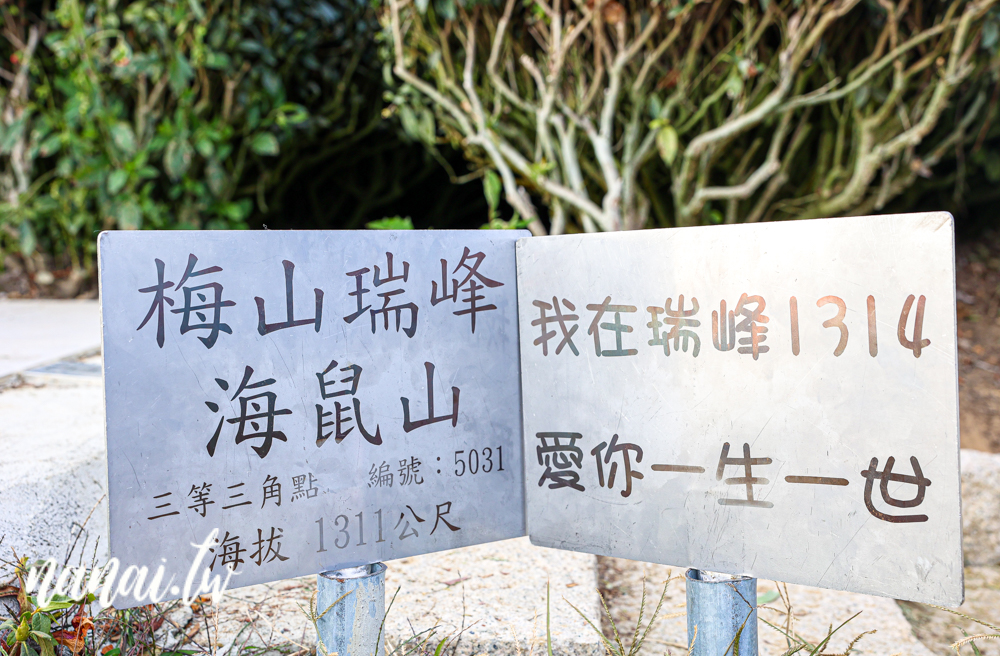 梅山瑞峰
海鼠山
三等三角點 編號：5031
海拔 1311公尺
我在瑞峰1314
愛你一生一世
nanai.tw